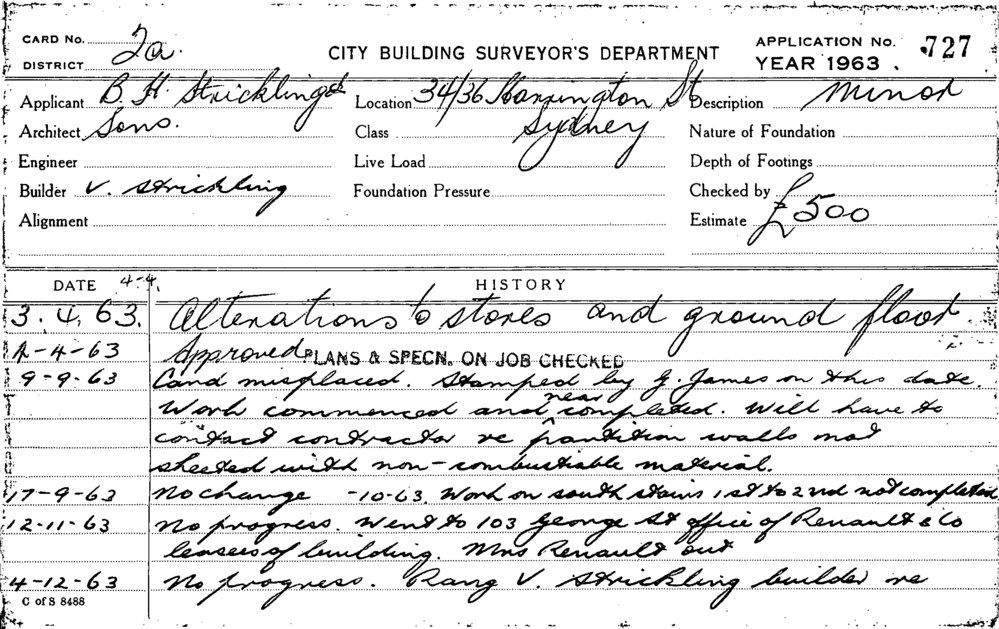 CARD No. 2a.
DISTRICT
CITY BUILDING SURVEYOR'S DEPARTMENT
APPLICATION No. 727
YEAR 1963.
Applicant B. H. Strickling &
Location 34/36 Harrington St
Description Minor
Architect Sons.
Class Sydney
Nature of Foundation
Engineer
Live Load
Depth of Footings
Builder V. Strickling
Foundation Pressure
Checked by
Alignment
Estimate £500
DATE 4-4.
HISTORY
3.4.63. Alterations to stores and ground floor.
-4-63 Approved. PLANS & SPECN. ON JOB CHECKED
9-9-63 Card misplaced. Stamped by G. James on this date.
Work commenced and near completed. Will have to
contact contractor re partition walls not
sheeted with non-combustiable material.
17-9-63 No change -10-63. Work on south stairs 1st to 2nd not completed
12-11-63 No progress. Went to 103 George St office of Renault & Co
leasees of building. Mrs Renault out
4-12-63 No progress. Rang V. Strickling builder re
C of S 8488